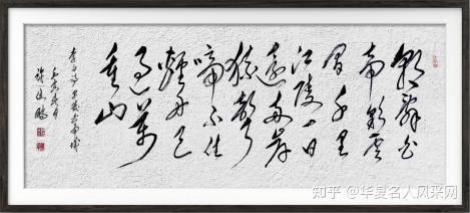 朝辭白
帝彩云
間千里
江陵一日
還兩岸
猿聲
啼不住
輕舟已
過萬
重山
李白诗早发白帝城
知乎 @华夏名人风采网